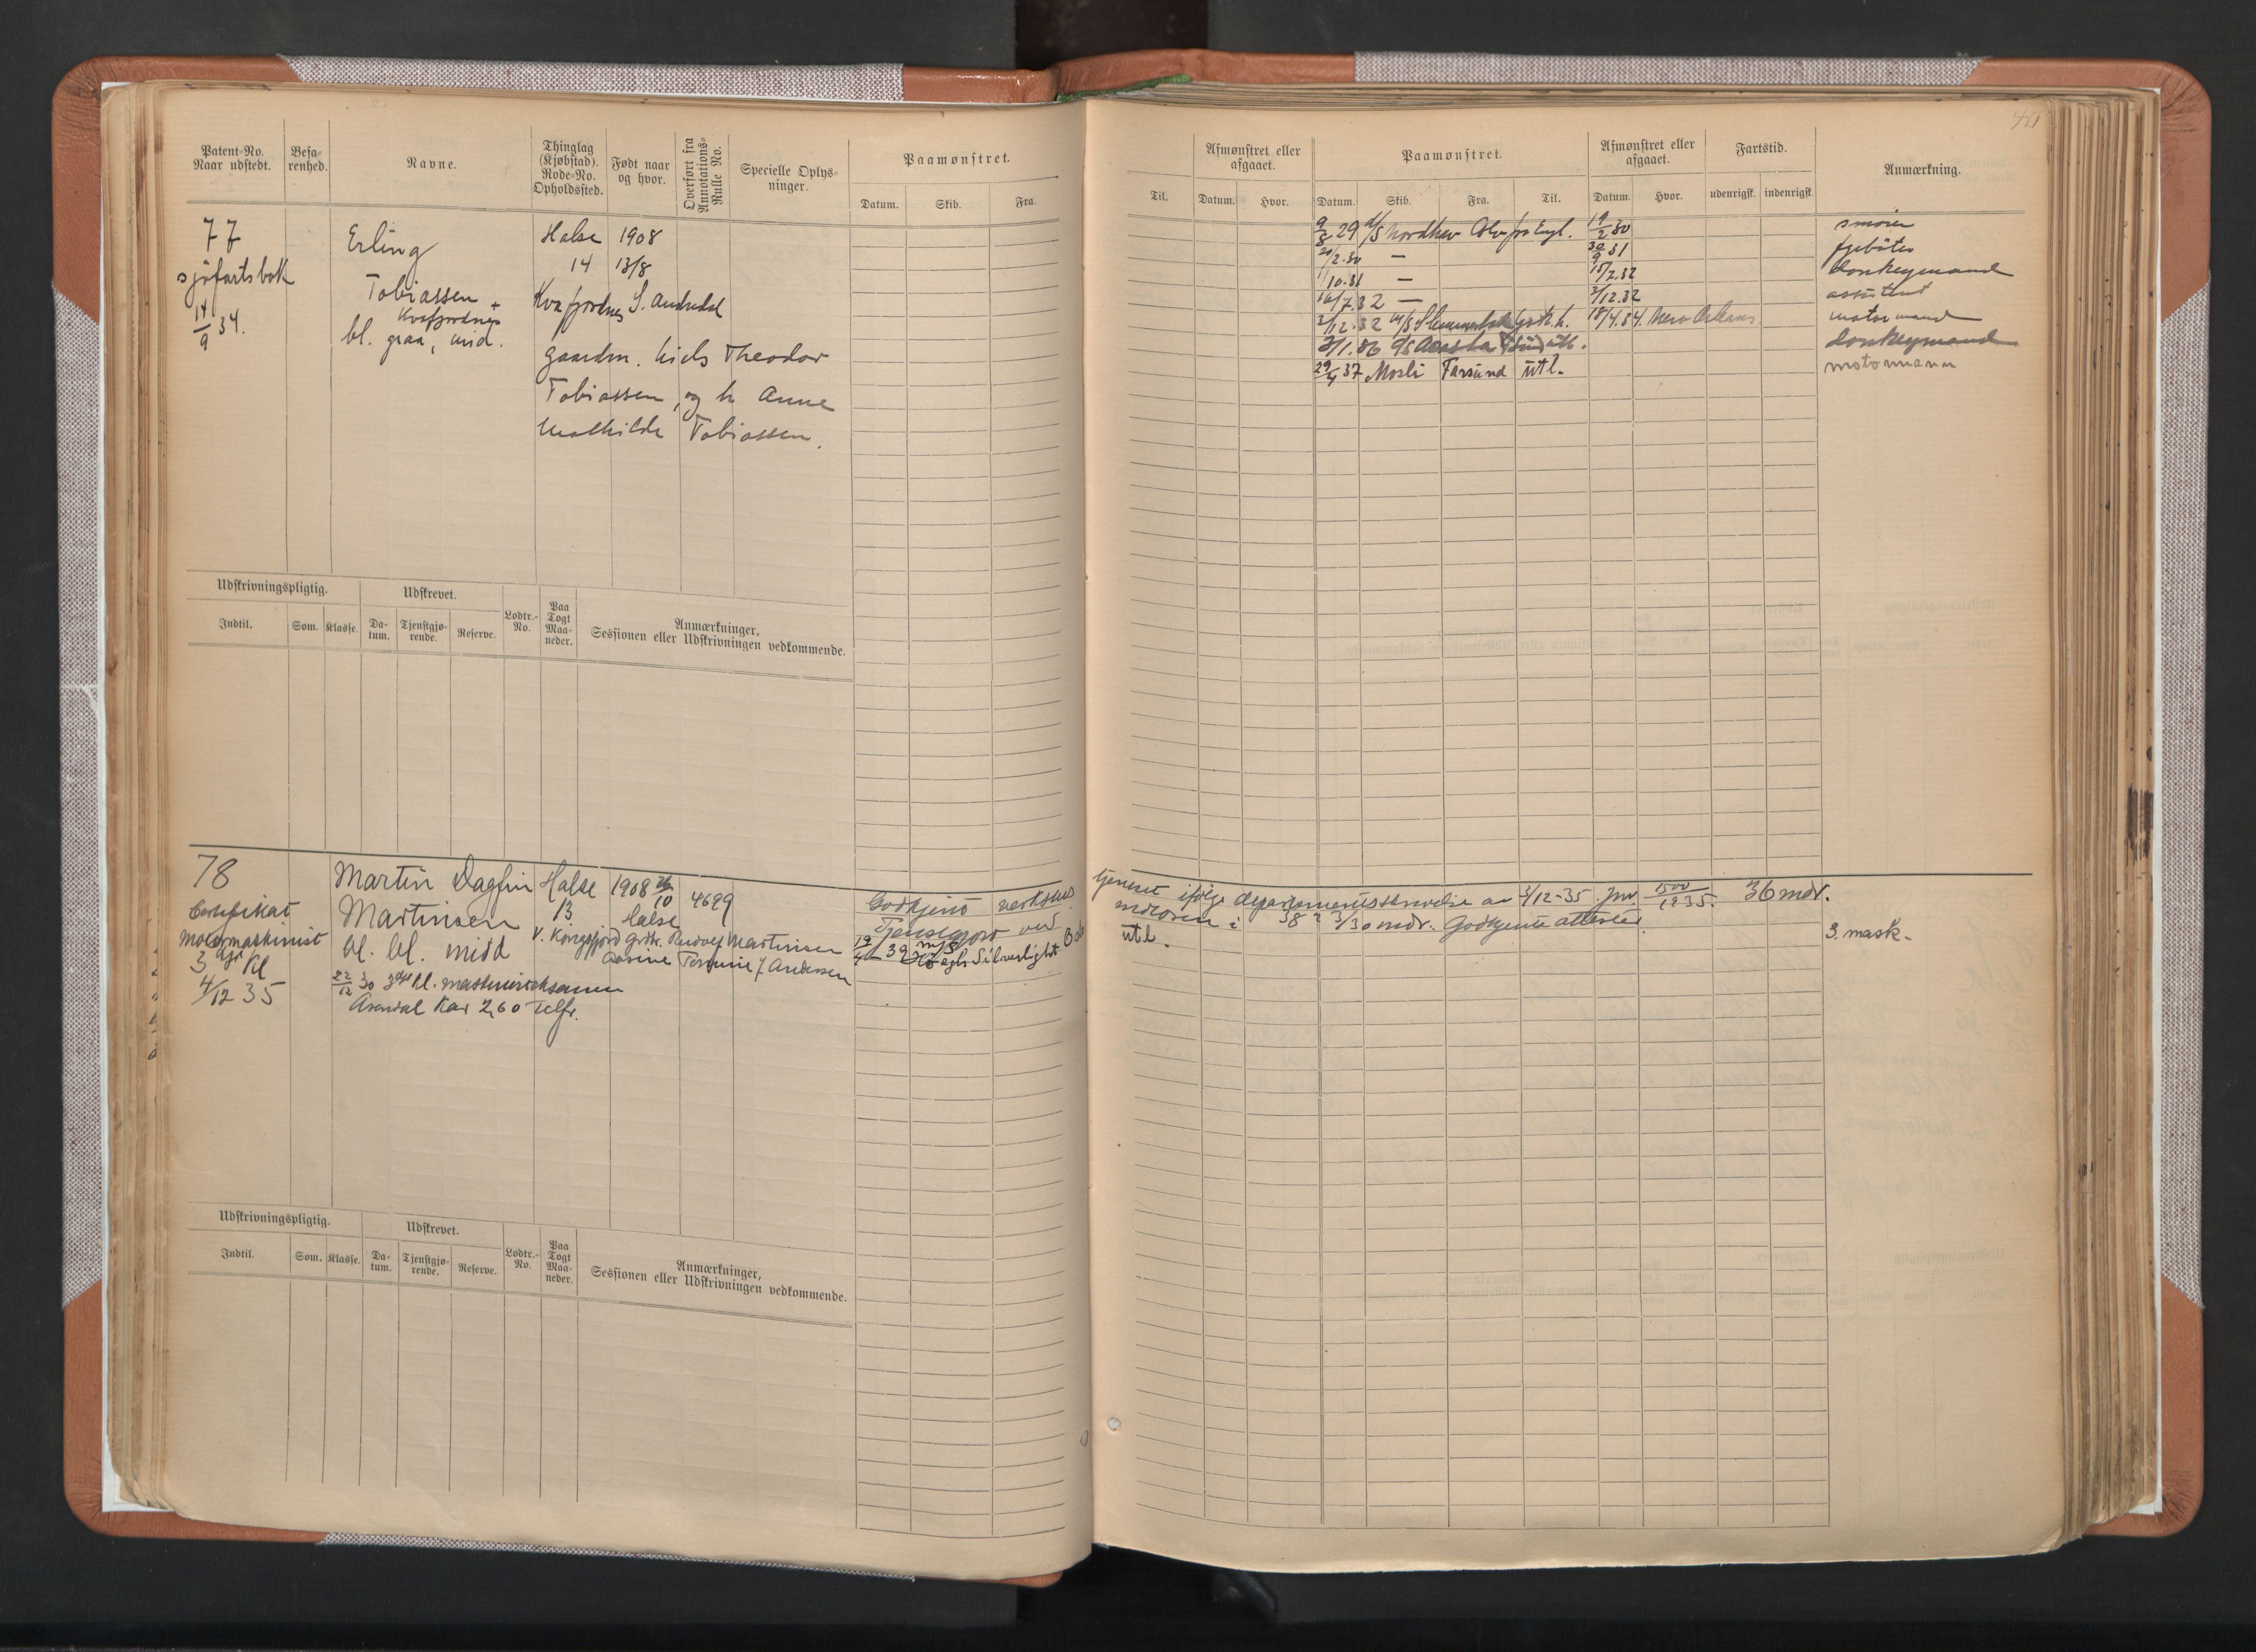 Patent-No. Naar udstedt.
Befarenhed.
Navne.
Thinglag (Kjøbstad). Rode-No. Opholdssted.
Født naar og hvor.
Overført fra Annotations-Rulle No.
Specielle Oplysninger.
Paamønstret.
Datum. Skib. Fra.
77
sjöfartsbok
14/9 34.
Erling
Tobiassen
Kvafjordnes
bl. graa, mid.
Halse 1908
14 13/8
Kvafjordnes S. Audnedal
gaardm. Niels Theodor
Tobiassen, og h Anne
Mathilde Tobiassen.
Udskrivningspligtig. Udskrevet.
Indtil. Som. Klasse. Datum. Tjenstgjørende. Reserve. Lodtr.-No. Paa Togt Maaneder.
Anmærkninger, Sessionen eller Udskrivningen vedkommende.
78
Certifikat
Motormaskinist
3 dje Kl
4/12 35
Martin Dagfin
Martinsen
bl. bl. midd
22/12 30 3dje kl. maskinisteksamen
Arendal Kar 2,60 Tilfr.
Halse 1908 26/10 4699
13 Halse
grdbr. Rudolf Martinsen
f. Andersen
Godkjent verksted
Tjenestgjort ved
19/4 39 m/s Høegh Silverlight Oslo
Udskrivningspligtig. Udskrevet.
Indtil. Som. Klasse. Datum. Tjenstgjørende. Reserve. Lodtr.-No. Paa Togt Maaneder.
Anmærkninger, Sessionen eller Udskrivningen vedkommende.
Afmønstret eller afgaaet.
Paamønstret.
Afmønstret eller afgaaet.
Fartstid.
Anmærkning.
Til. Datum. Hvor. Datum. Skib. Fra. Til. Datum. Hvor. udenrigsk. indenrigsk.
9/8 29 d/s Nordhav Engl. 19/2 30 smører
2.30 — 30/9 31 fyrbøter
1/10.31 — 15/7.32 donkeymand
16/7.32 — 2/12.32 assistent
2/12.32 m/s 18/4.34. New Orleans motormand
2/1.36 utl. donkeymand
29/4 37 Mosli Farsund utl. motormann
tjeneste ifølge departementsskrivelse av 3/12-35 jnr. 1500/1235. 36 mdr.
motoren i 38 2 3/30 mdr. Godkjente attester.
utl.
3. mask.